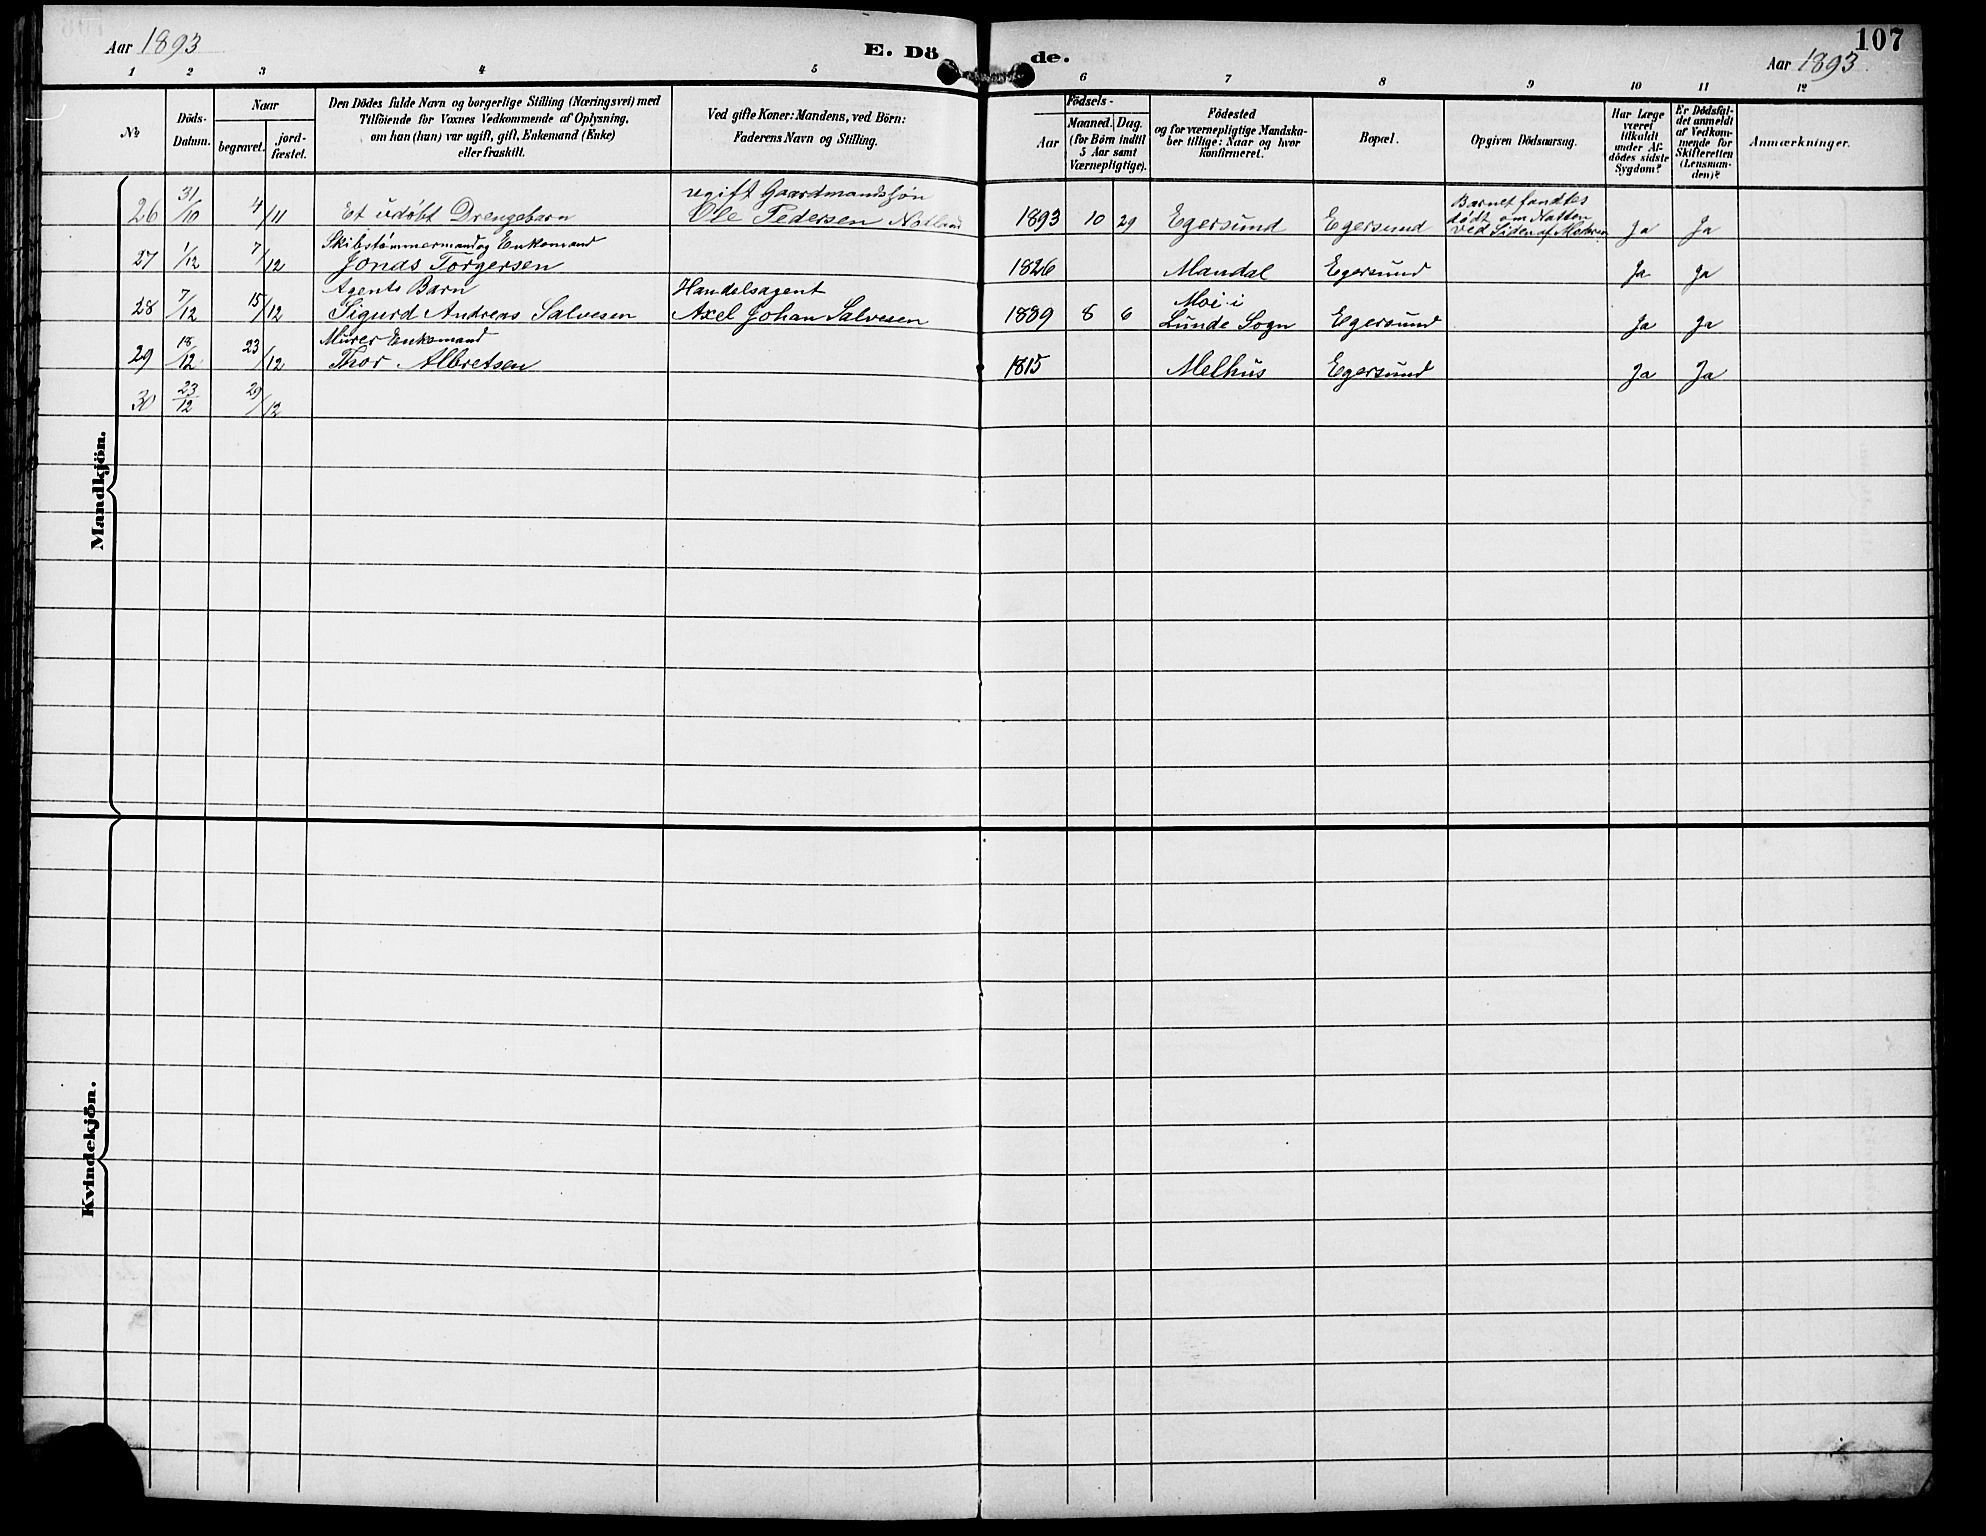 Aar 1893
E. Dö
de.
107
Aar 1893.
1 2 3 4 5 6 7 8 9 10 11 12
No
Döds-
Datum.
Naar
begravet.
jord-
fæstet.
Den Dödes fulde Navn og borgerlige Stilling (Næringsvei) med
Tilföiende for Voxnes Vedkommende af Oplysning,
om han (hun) var ugift, gift, Enkemand (Enke)
eller fraskilt.
Ved gifte Koner: Mandens, ved Börn:
Faderens Navn og Stilling.
Födsels-
Aar
Maaned. Dag.
(for Börn indtil
5 Aar samt
Værnepligtige).
Födested
og for værnepligtige Mandska-
ber tillige: Naar og hvor
Konfirmeret.
Bopæl.
Opgiven Dödsaarsag.
Har Læge
været
tilkaldt
under Af-
dödes sidste
Sygdom?
Er Dödsfal-
det anmeldt
af Vedkom-
mende for
Skifteretten
(Lensman-
den)?
Anmærkninger.
Mandkjön.
26 31/10 4/11 Et udöbt Drengebarn
ugift Gaardmandssön
Ole Pedersen Nodland
1893 10 29 Egersund Egersund
Barnet fandtes
dödt om Natten
ved Siden af Moderen
Ja Ja
Skibstömmermand og Enkemand
27 1/12 7/12 Jonas Torgersen 1826 Mandal Egersund Ja Ja
Agents Barn
Handelsagent
Moi i
28 7/12 15/12 Sigurd Andreas Salvesen Axel Johan Salvesen 1889 8 6 Lunde Sogn Egersund Ja Ja
Murer Enkemand
29 18/12 23/12 Thor Albretsen 1815 Melhus Egersund Ja Ja
30 23/12 29/12
Kvindekjön.